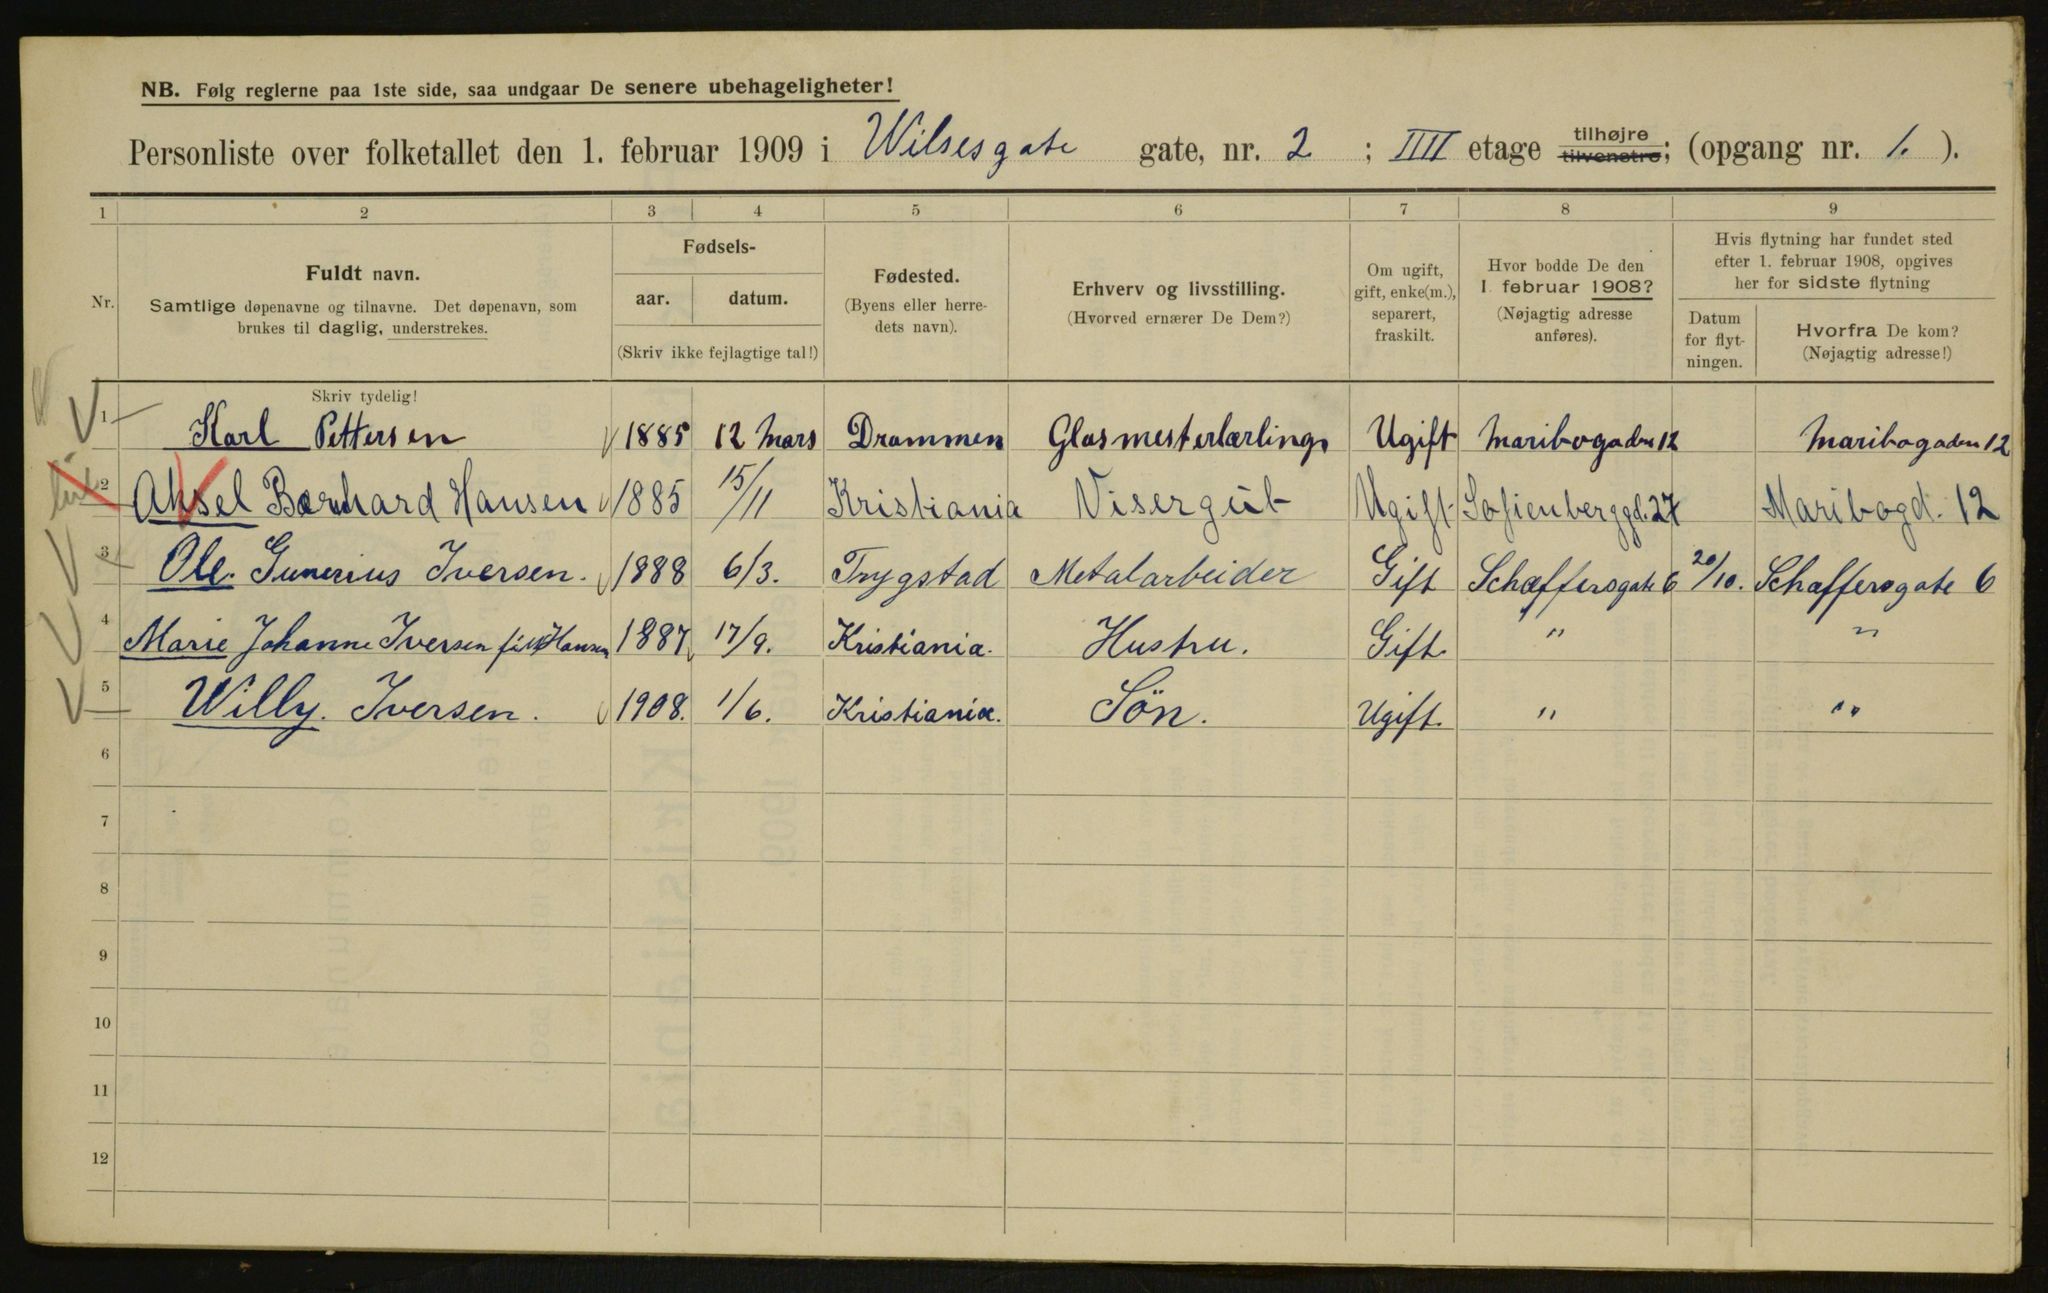 NB. Følg reglerne paa 1ste side, saa undgaar De senere ubehageligheter!
Personliste over folketallet den 1. februar 1909 i Wilsesgate gate, nr. 2 ; IIII etage tilhøjre tilvenstre; (opgang nr. 1. ).
1 2 3 4 5 6 7 8 9
Nr.
Fuldt navn.
Samtlige døpenavne og tilnavne. Det døpenavn, som
brukes til daglig, understrekes.
Fødsels-
aar. datum.
(Skriv ikke fejlagtige tal!)
Fødested.
(Byens eller herre-
dets navn).
Erhverv og livsstilling.
(Hvorved ernærer De Dem?)
Om ugift,
gift, enke(m.),
separert,
fraskilt.
Hvor bodde De den
1 februar 1908?
(Nøjagtig adresse
anføres).
Hvis flytning har fundet sted
efter 1. februar 1908, opgives
her for sidste flytning
Datum
for flyt-
ningen.
Hvorfra De kom?
(Nøjagtig adresse!)
Skriv tydelig!
1 Karl Pettersen 1885 12 Mars Drammen Glasmesterlærling Ugift Maribogaden 12 Maribogaden 12
2 Aksel Bernhard Hansen 1885 15/11 Kristiania Visergut Ugift Sofienberggd. 27 Maribogd. 12
3 Ole. Gunerius Iversen. 1888 6/3. Trygstad Metalarbeider Gift Schæffersgate 6 20/10. Schæffersgate 6
4 Marie Johanne Iversen Hansen 1887 17/9. Kristiania. Hustru. Gift. " "
5 Willy. Iversen. 1908. 1/6. Kristiania. Sön. Ugift. " "
6
7
8
9
10
11
12